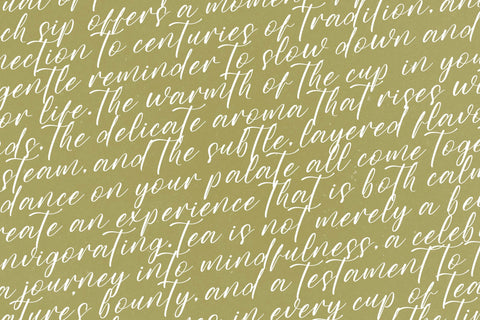 ch sip offers a moment
nection to centuries of tradition, an
gentle reminder to slow down and
or life. The warmth of the cup in you
ds. The delicate aroma that rises w
steam, and the subtle, layered flavo
dance on your palate all come toge
reate an experience that is both calm
nvigorating. Tea is not merely a be
a journey into mindfulness, a celeb
ature's bounty, and a testament to
in every cup of tea